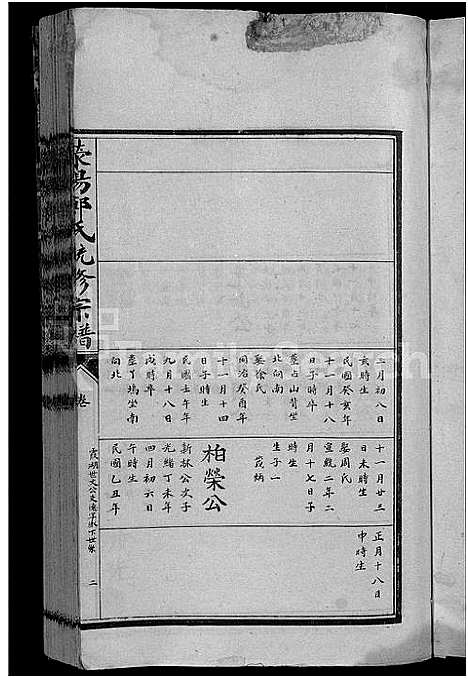 滎陽鄭氏統修宗譜
卷
霞湖世文公支德字派下世系
二
三月初八日
亥時生
民國癸亥年
十一月十八
日子時卒
葬占山背坐
北向南
娶徐氏
同治癸酉年
十一月十四
日子時生
民國壬午年
九月十八日
戌時卒
葬丫塢坐南
向北
十一月廿三
日未時生
娶周氏
宣統二年二
月十七日子
時生
生子一
茂炳
柏榮公
新林公次子
光緒丁未年
四月初六日
午時生
民國乙丑年
正月十八日
申時生